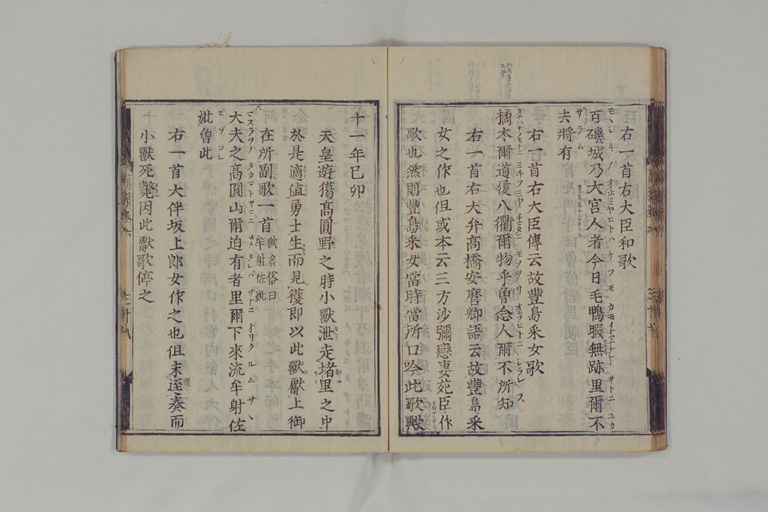 右一首右大臣和歌
百礒城乃大宮人者今日毛鴨暇無跡里尓不
去將有
右一首右大臣傳云故豊島采女歌
橘本尓道履八衢尓物乎曽念人尓不所知
右一首右大弁高橋安麿卿語云故豊島采
女之作也但或本云三方沙彌戀妻苑臣作
歌也然則豊島采女當時當所口吟此歌歟
十一年己卯
天皇遊獦高圓野之時小獸泄走堵里之中
於是適値勇士生而見獲即以此獸獻上御
在所副歌一首 獸名俗曰牟射佐妣
大夫之高圓山尓迫有者里尓下來流牟射佐
妣曽此
右一首大伴坂上郎女作之也但未逕奏而
小獸死斃因此獸歌停之